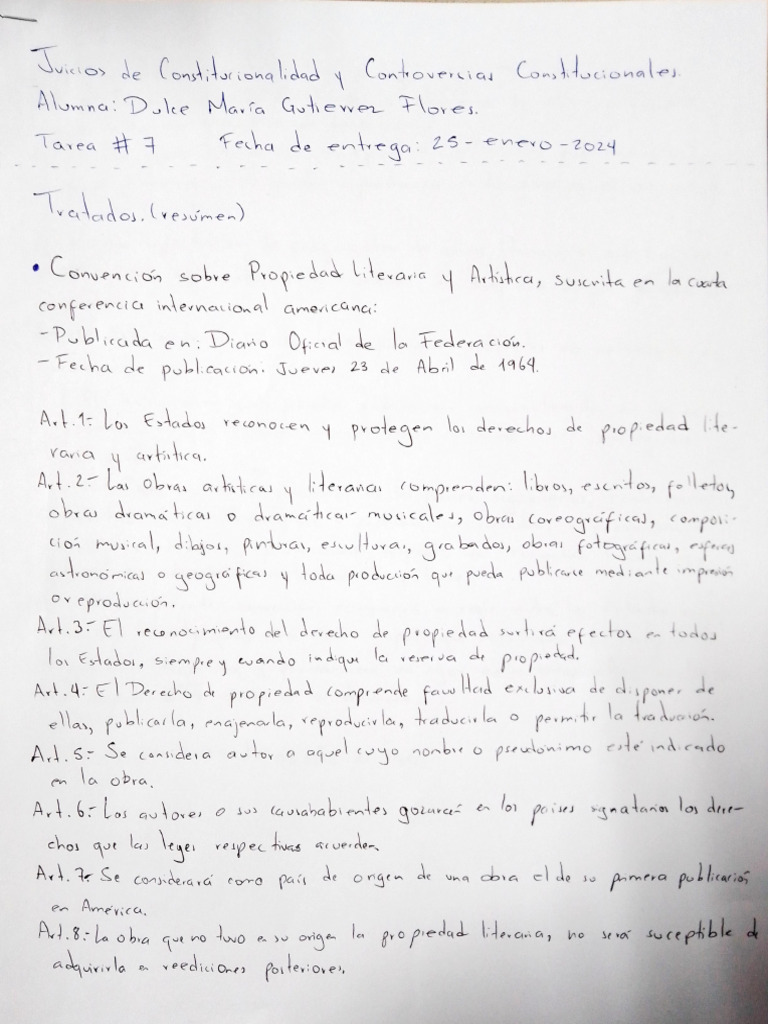 Juicios de Constitucionalidad y Controversias Constitucionales.
Alumna: Dulce María Gutierrez Flores.
Tarea # 7 Fecha de entrega: 25-enero-2024
Tratados. (resúmen)
• Convención sobre Propiedad Literaria y Artística, suscrita en la cuarta
conferencia internacional americana:
- Publicada en: Diario Oficial de la Federación.
- Fecha de publicación: Jueves 23 de Abril de 1964.
Art. 1:- Los Estados reconocen y protegen los derechos de propiedad lite-
raria y artística.
Art. 2:- Las obras artísticas y literarias comprenden: libros, escritos, folletos,
obras dramáticas o dramáticas- musicales, obras coreográficas, composi-
ción musical, dibjos, pinturas, esculturas, grabados, obras fotográficas, esferas
astronómicas o geográficas y toda producción que pueda publicarse mediante impresión
o reproducción.
Art. 3:- El reconocimiento del derecho de propiedad surtirá efectos en todos
los Estados, siempre y cuando indique la reserva de propiedad.
Art. 4:- El Derecho de propiedad comprende facultad exclusiva de disponer de
ellas, publicarla, enajenarla, reproducirla, traducirla o permitir la traducción.
Art. 5:- Se considera autor a aquel cuyo nonbre o pseudónimo esté indicado
en la obra.
Art. 6:- Los autores o sus causahabientes gozarán en los países signatarios los dere-
chos que las leyes respectivas acuerden.
Art. 7:- Se considerará como país de origen de una obra el de su primera publicación
en América.
Art. 8:- La obra que no tuvo en su origen la propiedad literaria, no será suceptible de
adquirirla en reediciones posteriores.